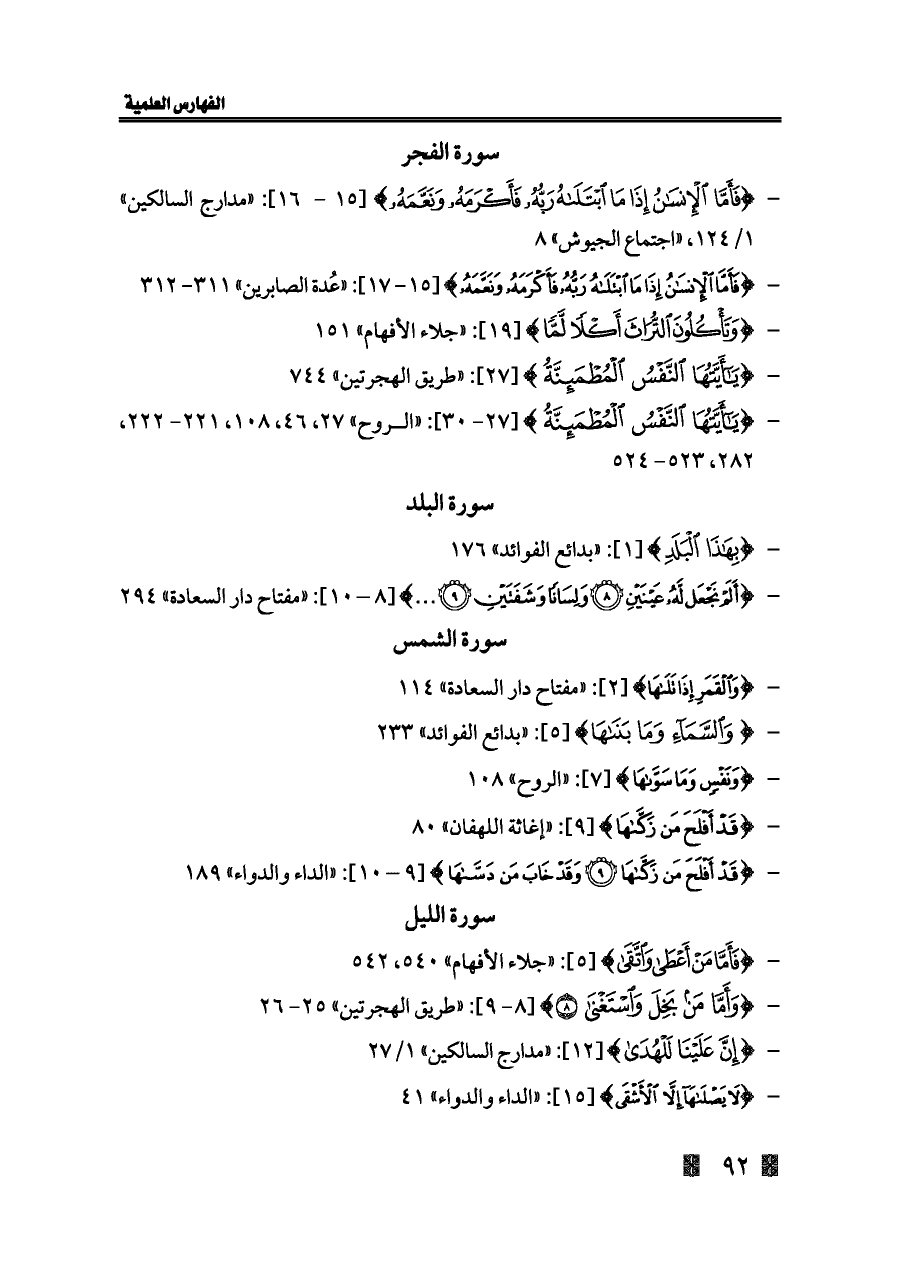 الفهارس العلمية
سورة الفجر
- ﴿فَأَمَّا ٱلْإِنسَٰنُ إِذَا مَا ٱبْتَلَىٰهُ رَبُّهُۥ فَأَكْرَمَهُۥ وَنَعَّمَهُۥ﴾ [١٥ - ١٦]: «مدارج السالكين»
١/ ١٢٤، «اجتماع الجيوش» ٨
- ﴿فَأَمَّا ٱلْإِنسَٰنُ إِذَا مَا ٱبْتَلَىٰهُ رَبُّهُۥ فَأَكْرَمَهُۥ وَنَعَّمَهُۥ﴾ [١٥-١٧]: «عُدة الصابرين» ٣١١-٣١٢
- ﴿وَتَأْكُلُونَ ٱلتُّرَاثَ أَكْلًا لَّمًّا﴾ [١٩]: «جلاء الأفهام» ١٥١
- ﴿يَٰٓأَيَّتُهَا ٱلنَّفْسُ ٱلْمُطْمَئِنَّةُ﴾ [٢٧]: «طريق الهجرتين» ٧٤٤
- ﴿يَٰٓأَيَّتُهَا ٱلنَّفْسُ ٱلْمُطْمَئِنَّةُ﴾ [٢٧-٣٠]: «الـروح» ٢٧، ٤٦، ١٠٨، ٢٢١-٢٢٢،
٢٨٢، ٥٢٣-٥٢٤
سورة البلد
- ﴿بِهَٰذَا ٱلْبَلَدِ﴾ [١]: «بدائع الفوائد» ١٧٦
- ﴿أَلَمْ نَجْعَل لَّهُۥ عَيْنَيْنِ ۝٨ وَلِسَانًا وَشَفَتَيْنِ ۝٩ ...﴾ [٨-١٠]: «مفتاح دار السعادة» ٢٩٤
سورة الشمس
- ﴿وَٱلْقَمَرِ إِذَا تَلَىٰهَا﴾ [٢]: «مفتاح دار السعادة» ١١٤
- ﴿وَٱلسَّمَآءِ وَمَا بَنَىٰهَا﴾ [٥]: «بدائع الفوائد» ٢٣٣
- ﴿وَنَفْسٍ وَمَا سَوَّىٰهَا﴾ [٧]: «الروح» ١٠٨
- ﴿قَدْ أَفْلَحَ مَن زَكَّىٰهَا﴾ [٩]: «إغاثة اللهفان» ٨٠
- ﴿قَدْ أَفْلَحَ مَن زَكَّىٰهَا ۝٩ وَقَدْ خَابَ مَن دَسَّىٰهَا﴾ [٩-١٠]: «الداء والدواء» ١٨٩
سورة الليل
- ﴿فَأَمَّا مَنْ أَعْطَىٰ وَٱتَّقَىٰ﴾ [٥]: «جلاء الأفهام» ٥٤٠، ٥٤٢
- ﴿وَأَمَّا مَنۢ بَخِلَ وَٱسْتَغْنَىٰ ۝٨﴾ [٨-٩]: «طريق الهجرتين» ٢٥-٢٦
- ﴿إِنَّ عَلَيْنَا لَلْهُدَىٰ﴾ [١٢]: «مدارج السالكين» ١/ ٢٧
- ﴿لَا يَصْلَىٰهَآ إِلَّا ٱلْأَشْقَى﴾ [١٥]: «الداء والدواء» ٤١
٩٢